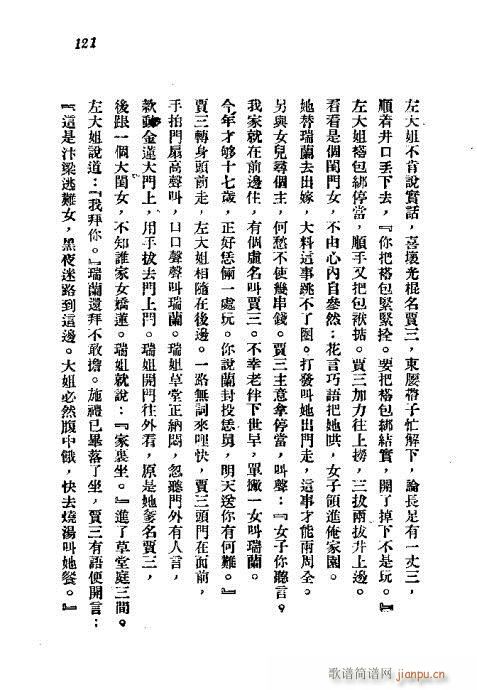 121
左大姐不肯說實話，喜壞光棍名賈三，東腰帶子忙解下，論長足有一丈三，
順着井口丟下去，『你把褡包緊緊拴。要把褡包綁結實，開了掉下不是玩。』
左大姐褡包綁停當，順手又把包袱掂。賈三加力往上撈，三拔兩拔井上邊。
看看是個閨門女，不由心內自參然：花言巧語把她哄，女子領進俺家園。
她替瑞蘭去出嫁，大料這事跳不了圈。打發叫她出門走，這事才能兩周全。
另與女兒尋個主，何愁不使幾串錢。賈三主意拿停當，叫聲：『女子你聽言。
我家就在前邊住，有個虛名叫賈三。不幸老伴下世早，單撇一女叫瑞蘭。
今年才够十七歲，正好恁倆一處玩。你說蘭封投恁舅，明天送你有何難。』
賈三轉身頭前走，左大姐相隨在後邊。一路無詞來哩快，賈三頭門在面前，
手拍門扇高聲叫，口口聲聲叫瑞蘭。瑞姐草堂正納悶，忽聽門外有人言，
欵動金蓮大門上，用手拔去門上門。瑞姐開門往外看，原是她爹名賈三，
後跟一個大閨女，不知誰家女嬌蓮。瑞姐就說：『家裏坐。』進了草堂庭三間。
左大姐說道：『我拜你。』瑞蘭還拜不敢擔。施禮已畢落了坐，賈三有語便開言：
『這是汴梁逃難女，黑夜迷路到這邊。大姐必然腹中餓，快去燒湯叫她餐。』
歌谱简谱网
jianpu.cn